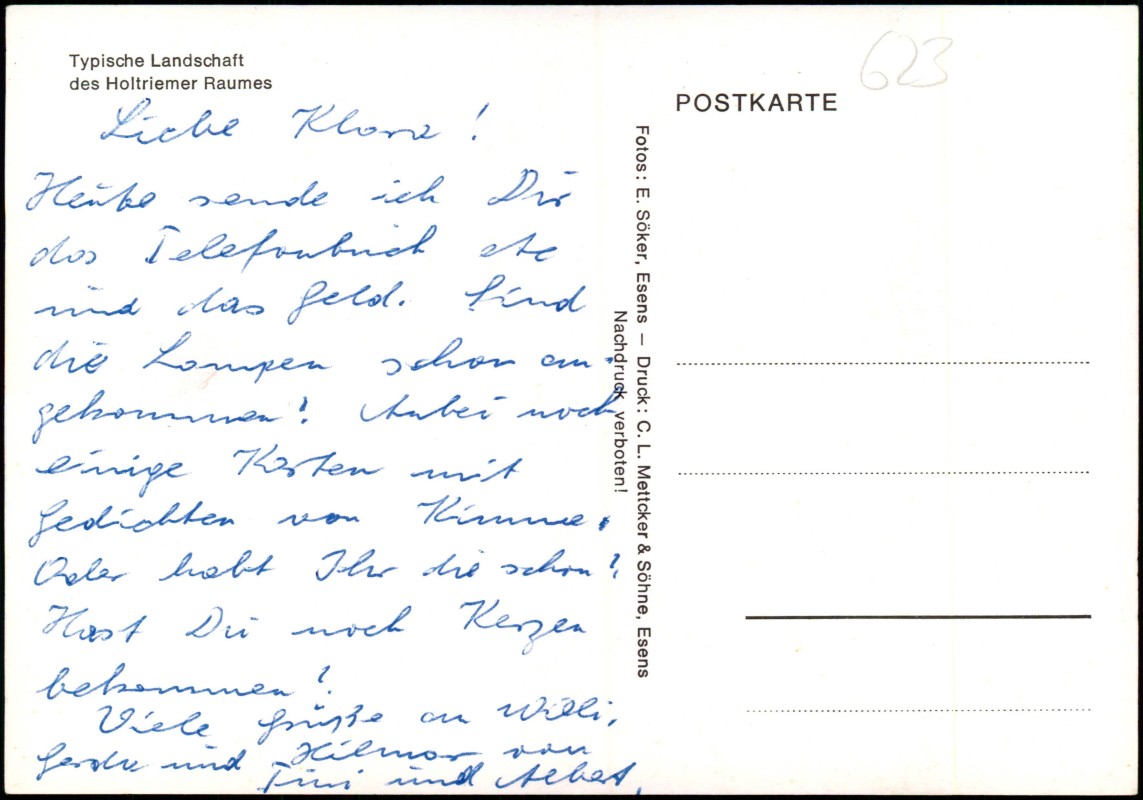 Typische Landschaft
des Holtriemer Raumes
Liebe Klara!
Heute sende ich Dir
das Telefonbuch etc
und das Geld. Sind
die Lampen schon an-
gekommen? Anbei noch
einige Karten mit
Gedichten von Kimme.
Oder habt Ihr die schon?
Hast Du noch Kerzen
bekommen?
Viele Grüße an Willi,
Gerda und Hilmar von
Tini und Albert.
Fotos: E. Söker, Esens – Druck: C. L. Mettcker & Söhne, Esens
Nachdruck verboten!
623
POSTKARTE